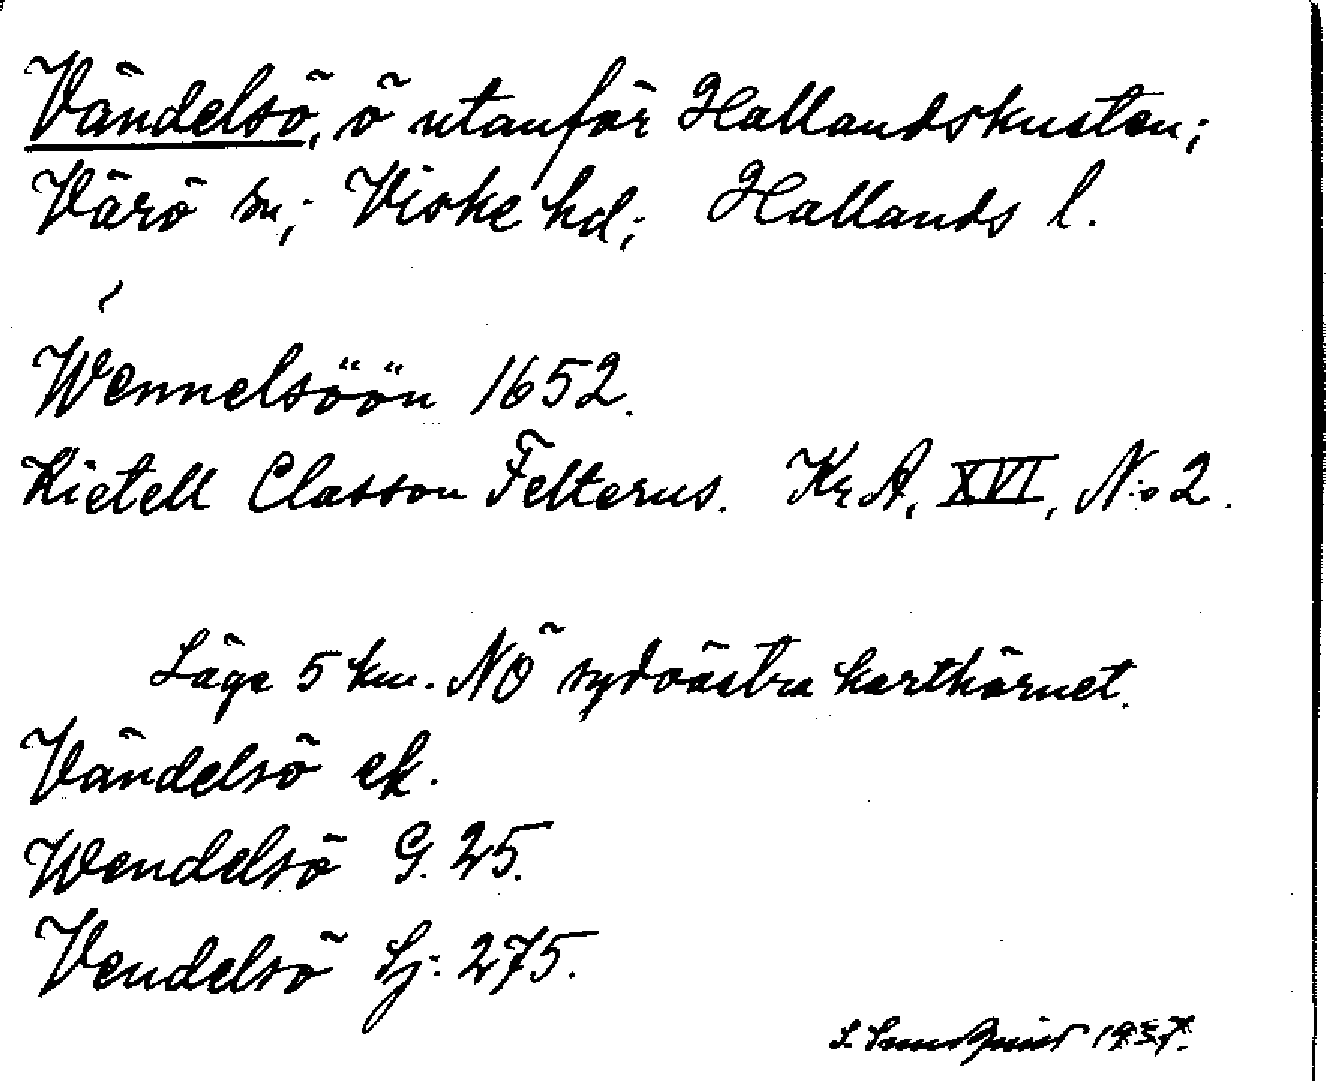 Vändelsö, ö utanför Hallandskusten;
Värö sn; Viske hd; Hallands l.
Wennelsöön 1652.
Kietell Classon Felterus. Kr.A, XVI, N:o 2.
Läge 5 km. NÖ sydvästra karthörnet.
Vändelsö ek.
Wendelsö G. 25.
Vendelsö Lj: 275.
1937.